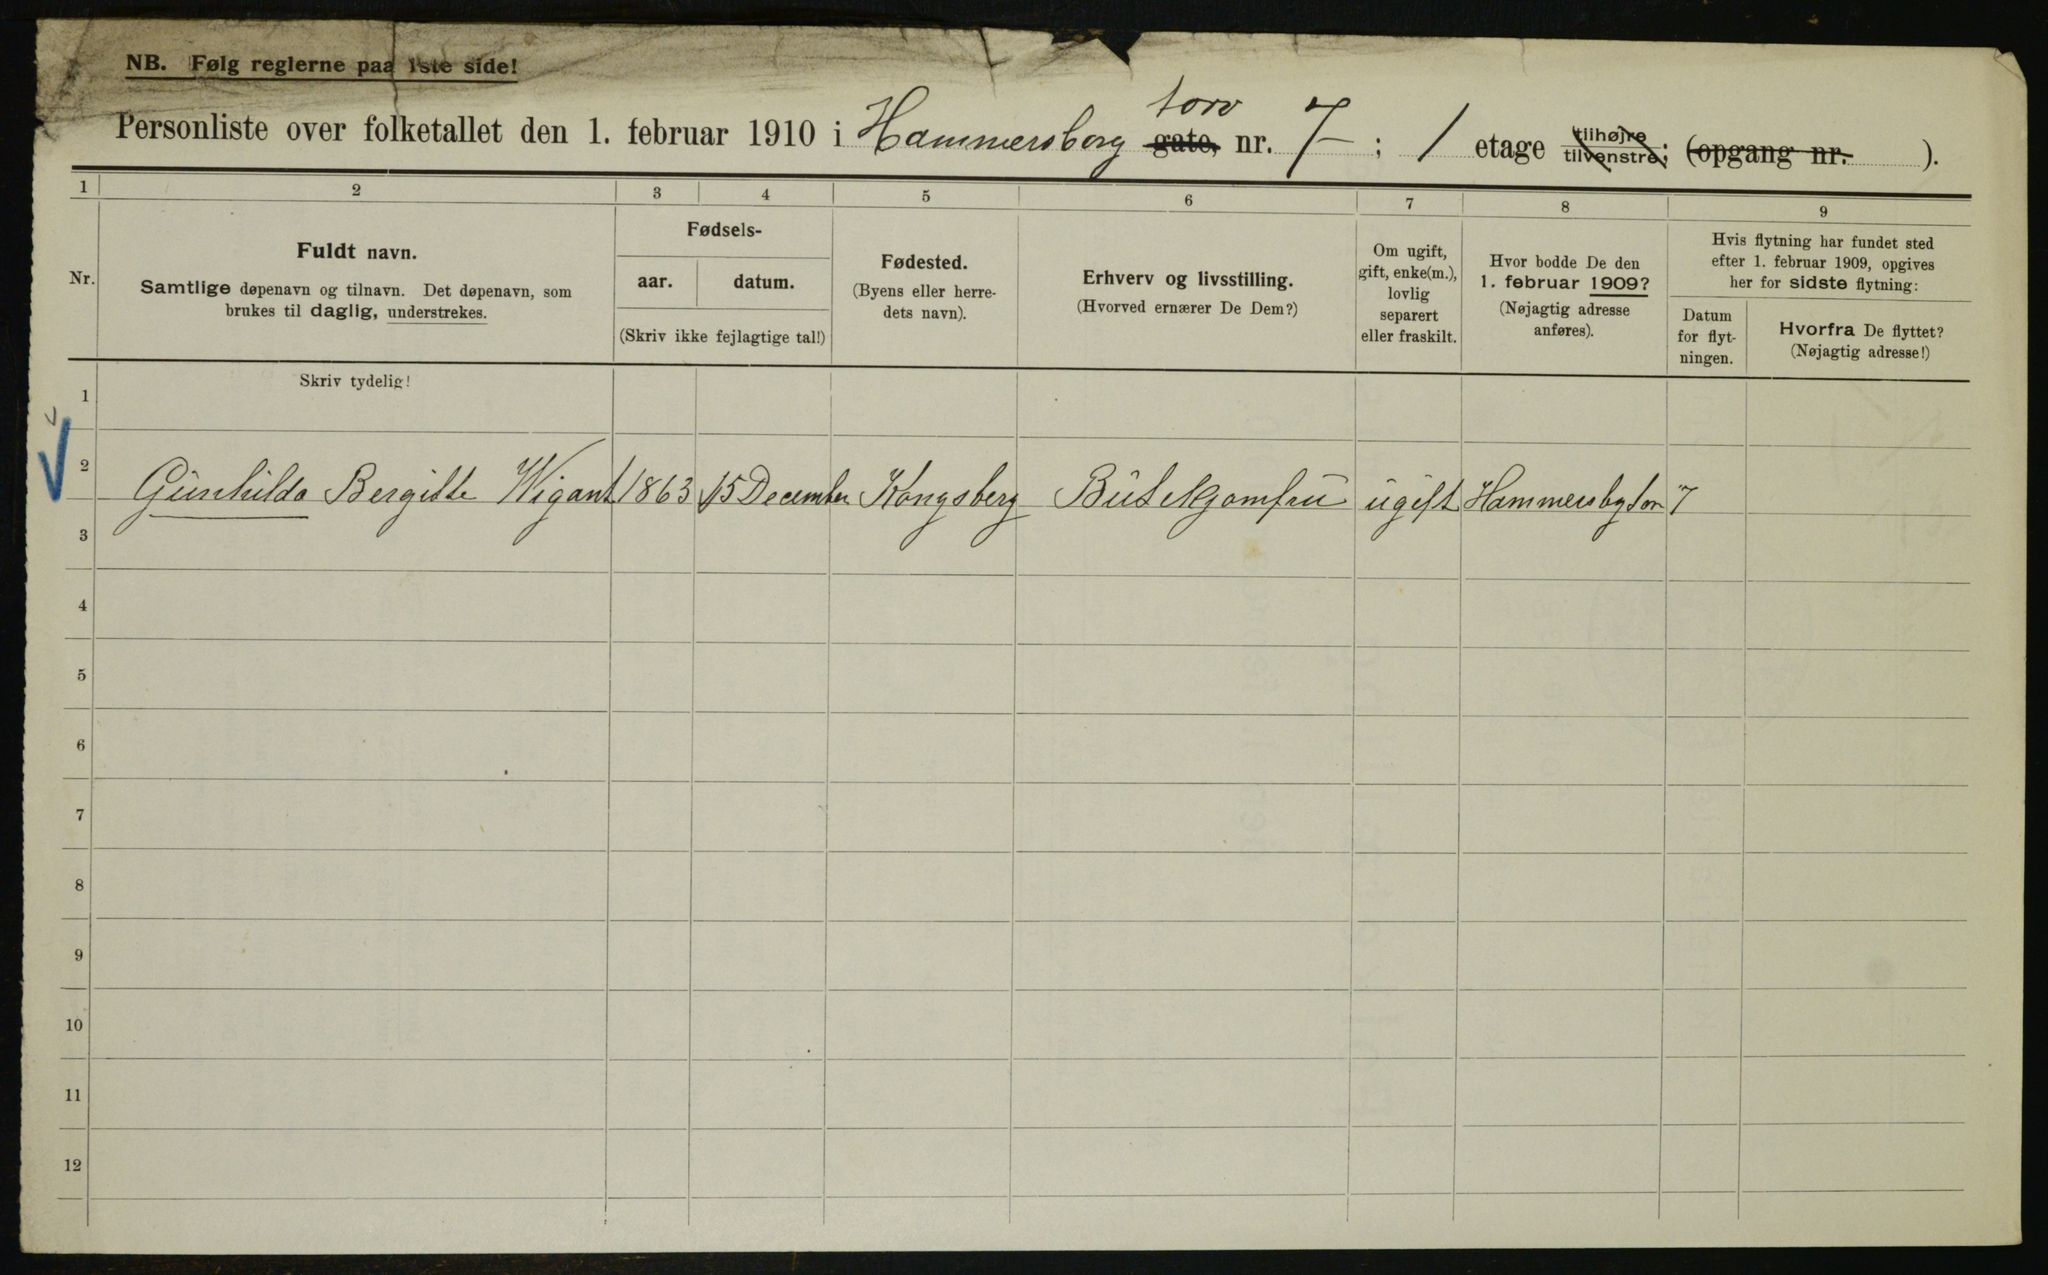 NB. Følg reglerne paa 1ste side!
Personliste over folketallet den 1. februar 1910 i Hammersborg torv gate, nr. 7 ; 1 etage tilhøjre tilvenstre; (opgang nr. ).
1 2 3 4 5 6 7 8 9
Nr.
Fuldt navn.
Samtlige døpenavn og tilnavn. Det døpenavn, som
brukes til daglig, understrekes.
Fødsels-
aar. datum.
(Skriv ikke fejlagtige tal!)
Fødested.
(Byens eller herre-
dets navn).
Erhverv og livsstilling.
(Hvorved ernærer De Dem?)
Om ugift,
gift, enke(m.),
lovlig
separert
eller fraskilt.
Hvor bodde De den
1. februar 1909?
(Nøjagtig adresse
anføres).
Hvis flytning har fundet sted
efter 1. februar 1909, opgives
her for sidste flytning:
Datum
for flyt-
ningen.
Hvorfra De flyttet?
(Nøjagtig adresse!)
Skriv tydelig!
1
2
Gunhilda Bergitte Wigant 1863 15 December Kongsberg Butikjomfru ugift Hammersbgtor 7
3
4
5
6
7
8
9
10
11
12